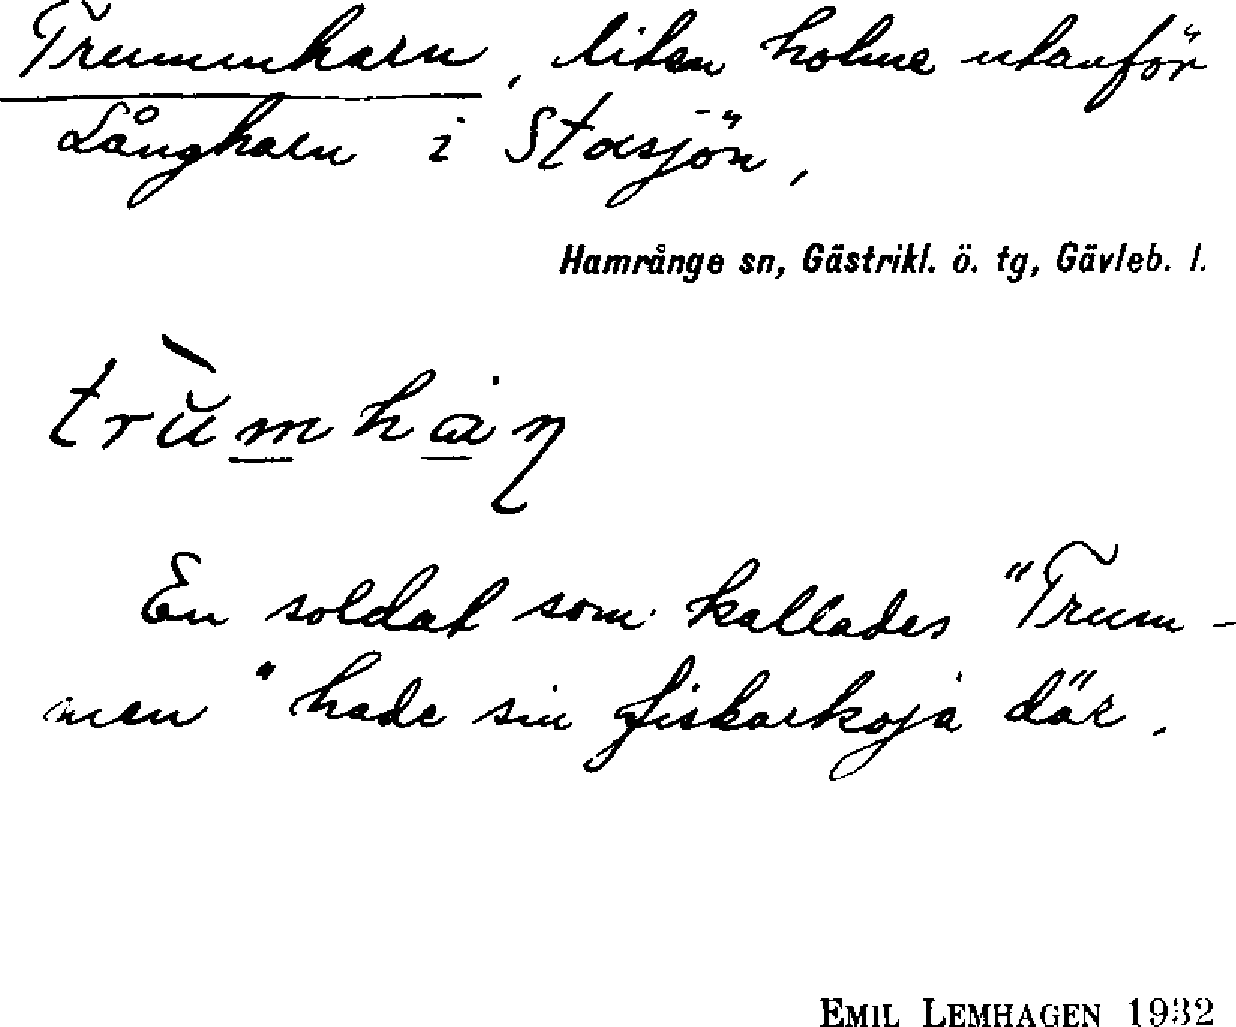 Trumharn, liten holme utanför
Långharn i Storsjön,
Hamrånge sn, Gästrikl. ö. tg, Gävleb. l.
En soldat som kallades "Trum-
men" hade sin fiskarkoja där.
EMIL LEMHAGEN 1932